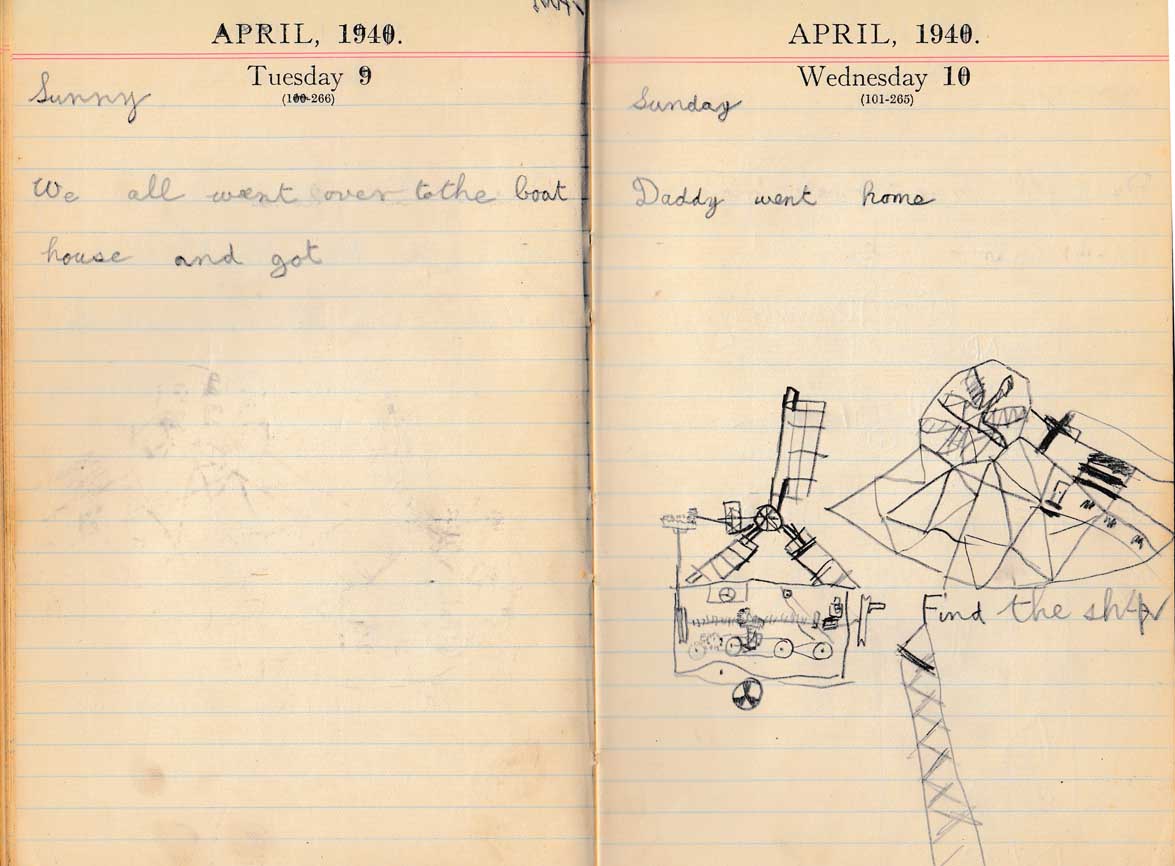 APRIL, 1940.
Tuesday 9
(100-266)
Sunny
We all went over tothe boat
house and got
APRIL, 1940.
Wednesday 10
(101-265)
Sunday
Daddy went home
Find the ship